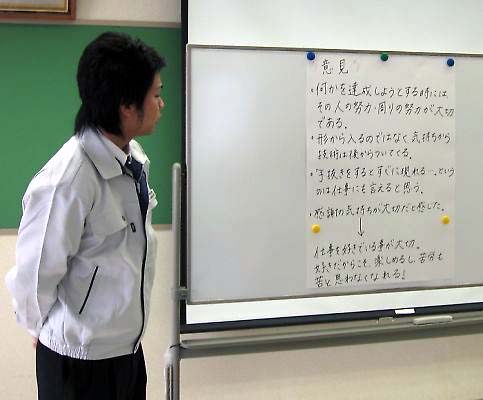 意見
・何かを達成しようとする時には
その人の努力・周りの努力が大切
である。
・形から入るのではなく気持ちから
技術は後からついてくる。
・手抜きをするとすぐに現れる…。という
のは仕事にも言えると思う。
・感謝の気持ちが大切だと感じた。
↓
仕事を好きでいる事が大切。
好きだからこそ、楽しめるし、苦労も
苦と思わなくなれる!